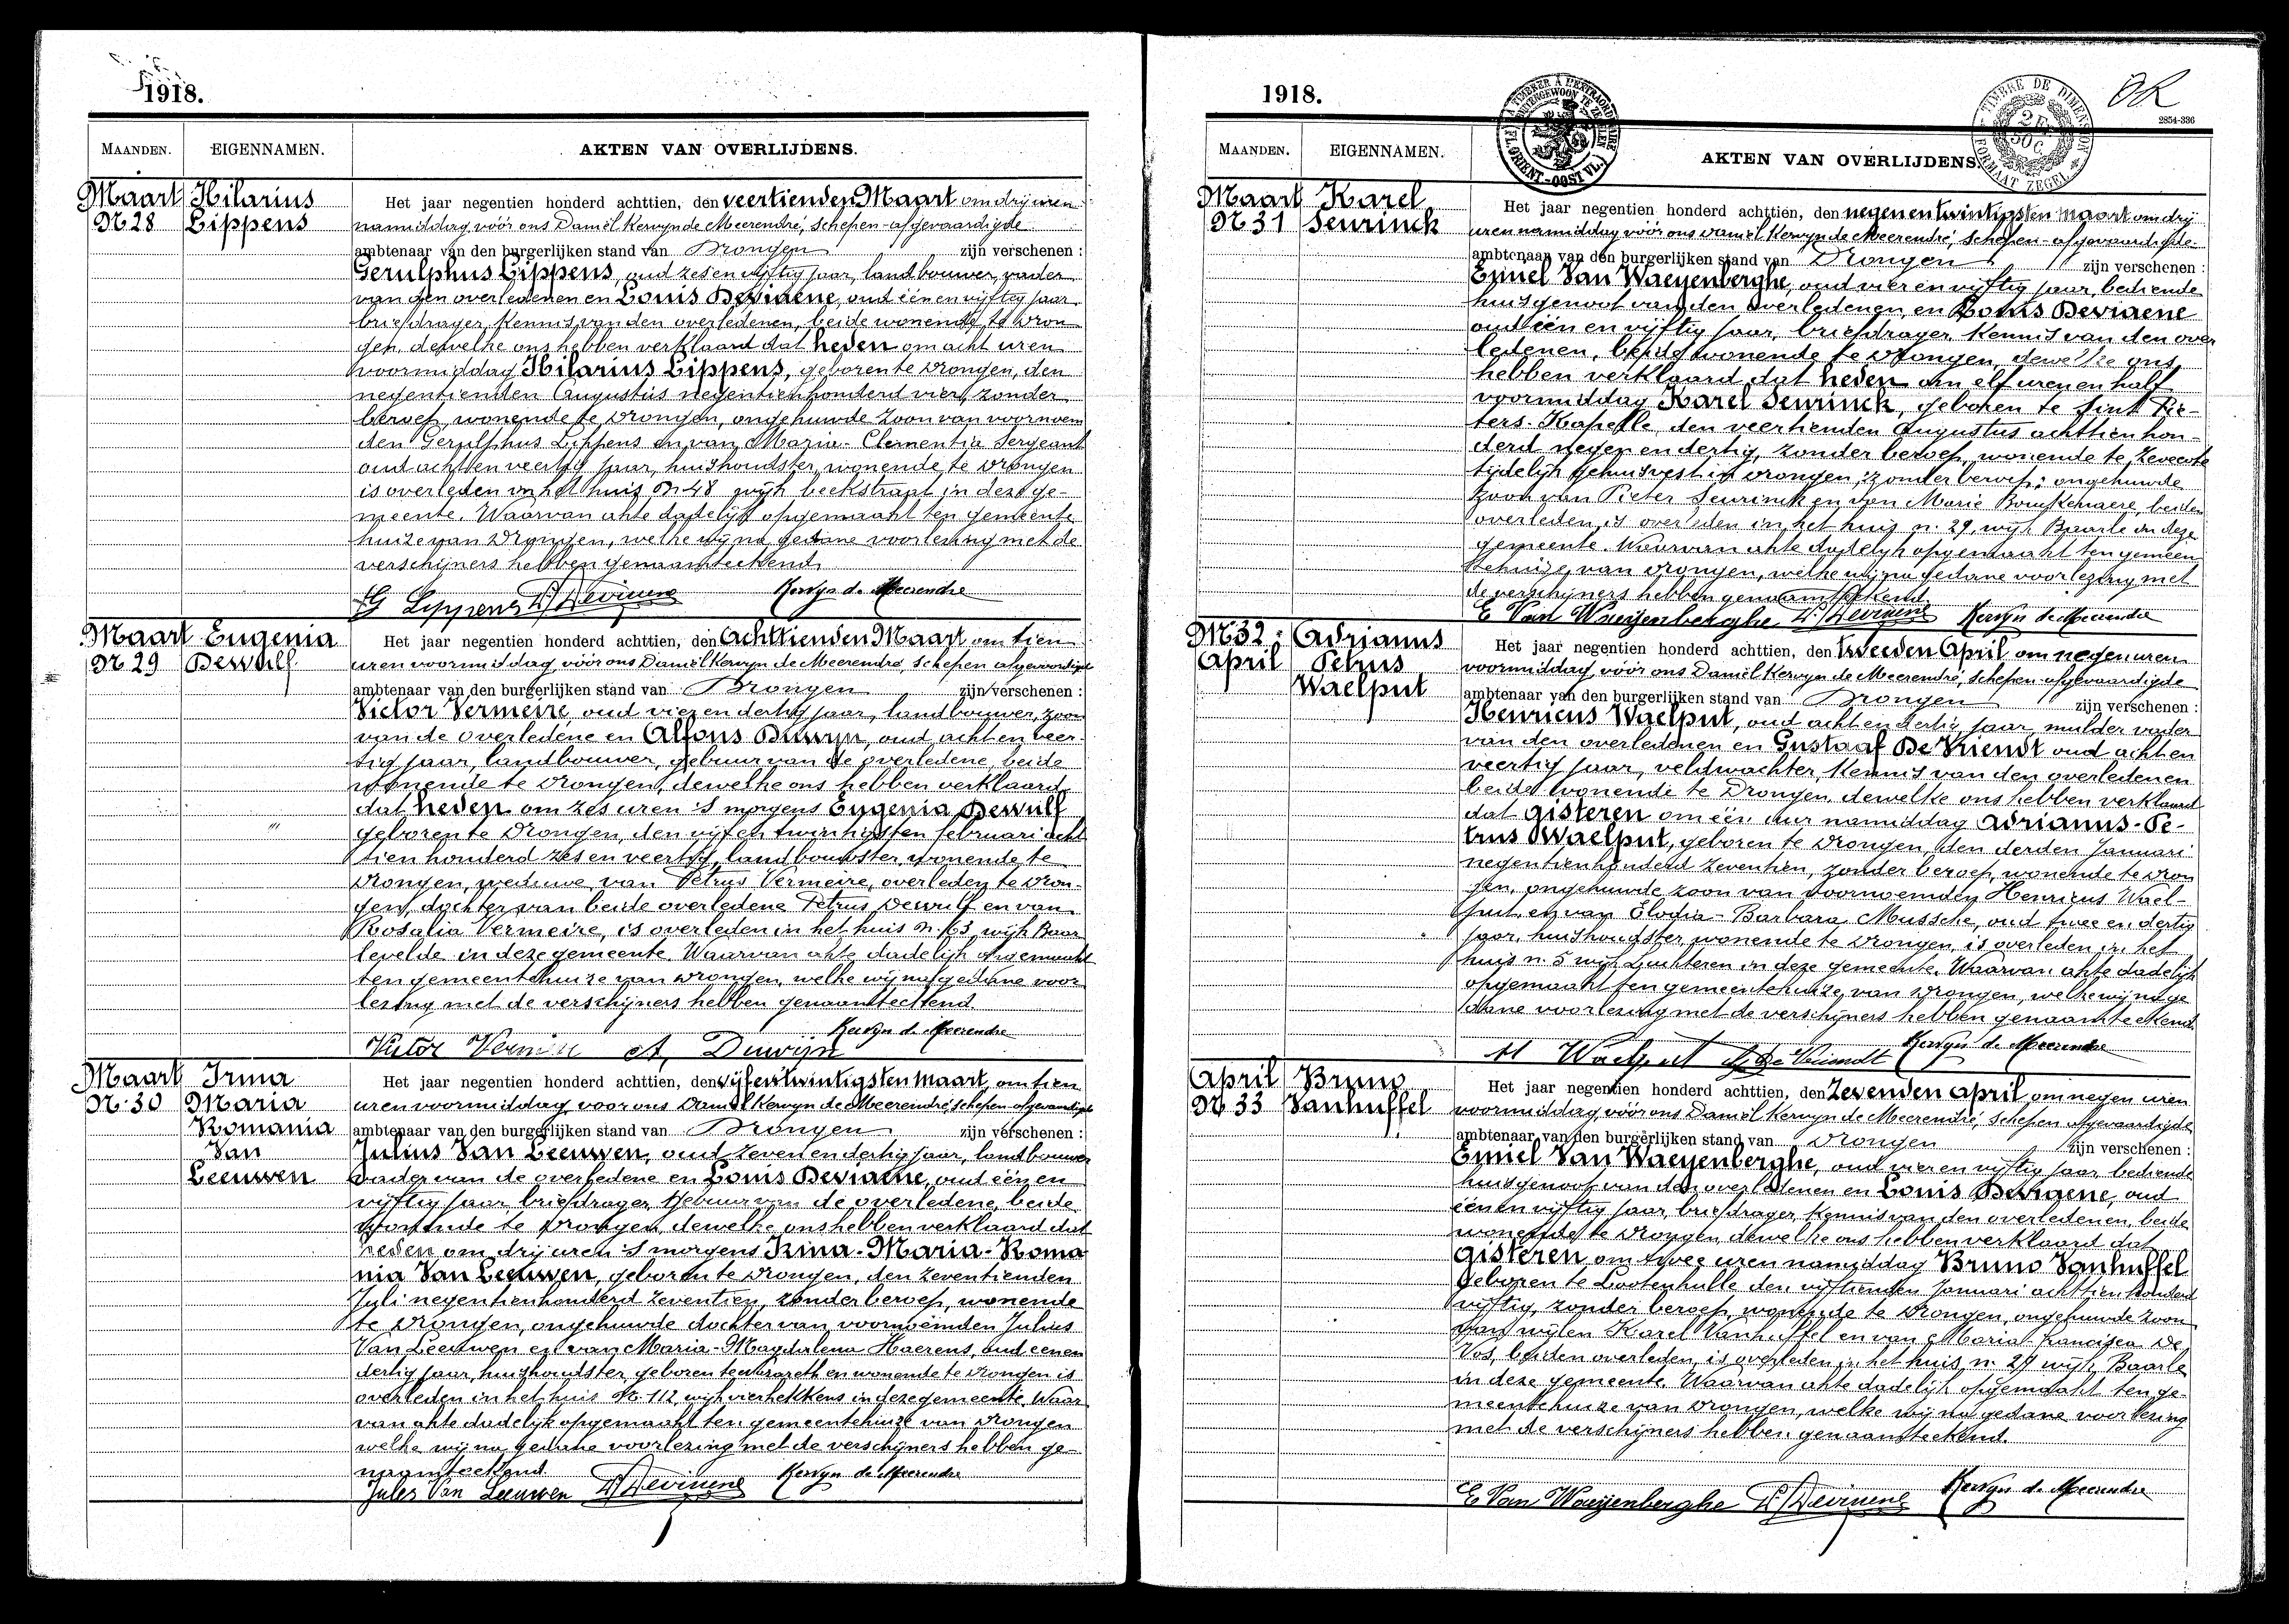 1918.
MAANDEN. EIGENNAMEN. AKTEN VAN OVERLIJDENS.
Maart Hilarius
N. 28 Lippens
Het jaar negentien honderd achttien, den veertienden Maart om drij uren
namiddag vóór ons Daniël Kervyn de Meerendré, schepen-afgevaardigde
ambtenaar van den burgerlijken stand van Drongen zijn verschenen :
Gerulphus Lippens, oud zes en vijftig jaar, landbouwer, vader
van den overledenen en Louis Deviaene, oud één en vijftig jaar
briefdrager, kennis van den overledenen, beide wonende te Dron
gen, dewelke ons hebben verklaard dat heden om acht uren
voormiddag Hilarius Lippens, geboren te Drongen, den
negentienden Augustus negentienhonderd vier, zonder
beroep, wonende te Drongen, ongehuwde zoon van voornoem
den Gerulphus Lippens en van Maria-Clementia Sergeant
oud acht en veertig jaar, huishoudster, wonende te Drongen
is overleden in het huis N. 48 wijk beekstraat in deze ge-
meente. Waarvan akte dadelijk opgemaakt ten gemeente
huize van Drongen, welke wij na gedane voorlezing met de
verschijners hebben genaamteekend.
G Lippens L. Deviaene Kervyn de Meerendre
Maart Eugenia
N. 29 Dewulf
Het jaar negentien honderd achttien, den Achttienden Maart om tien
uren voormiddag vóór ons Daniël Kervyn de Meerendré, schepen afgevaardigde
ambtenaar van den burgerlijken stand van Drongen zijn verschenen :
Victor Vermeire, oud vier en dertig jaar, landbouwer, zoon
van de overledene en Alfons Duwyn, oud acht en veer
tig jaar, landbouwer, gebuur van de overledene, beide
wonende te Drongen, dewelke ons hebben verklaard
dat heden om zes uren 's morgens Eugenia Dewulf
geboren te Drongen, den vijf en twintigsten februari acht
tien honderd zes en veertig, landbouwster, wonende te
Drongen, weduwe van Petrus Vermeire, overleden te Dron-
gen, dochter van beide overledene Petrus Dewulf en van
Rosalia Vermeire, is overleden in het huis N. 63, wijk Baar
levelde in deze gemeente. Waarvan akte dadelijk opgemaakt
ten gemeentehuize van Drongen, welke wij na gedane voor
lezing met de verschijners hebben genaamteekend.
Kervyn de Meerendre
Victor Vermeire A. Duwijn
Maart Irma
N. 30 Maria
Romania
Van
Leeuwen
Het jaar negentien honderd achttien, den vijfentwintigsten Maart, om tien
uren voormiddag voor ons Daniël Kervyn de Meerendré, schepen-afgevaardigde
ambtenaar van den burgerlijken stand van Drongen zijn verschenen :
Julius Van Leeuwen, oud zeven en dertig jaar, landbouwer
vader van de overledene en Louis Deviaene, oud één en
vijftig jaar, briefdrager, gebuur van de overledene, beide
wonende te Drongen, dewelke ons hebben verklaard dat
heden om drij uren 's morgens Irma-Maria-Roma
nia Van Leeuwen, geboren te Drongen, den zeventienden
Juli negentienhonderd zeventien, zonder beroep, wonende
te Drongen, ongehuwde dochter van voornoemden Julius
Van Leeuwen en van Maria-Magdalena Haerens, oud eenen
dertig jaar, huishoudster, geboren te Nazareth en wonende te Drongen is
overleden in het huis N. 112 wijk vierhekkens in deze gemeente. Waar
van akte dadelijk opgemaakt ten gemeentehuize van Drongen
welke wij na gedane voorlezing met de verschijners hebben ge-
naamteekend.
Jules Van Leeuwen L. Deviaene Kervyn de Meerendre
1918.
OK
2854-336
TIMBRE DE DIMENSION
2 Fr. 50 c.
FORMAAT ZEGEL
MAANDEN. EIGENNAMEN. AKTEN VAN OVERLIJDENS.
Maart Karel
N. 31 Seurinck
Het jaar negentien honderd achttien, den negenentwintigsten maart om drij
uren namiddag vóór ons Daniël Kervyn de Meerendré, schepen-afgevaardigde
ambtenaar van den burgerlijken stand van Drongen zijn verschenen :
Emiel Van Waeyenberghe, oud vier en vijftig jaar, bediende
huisgenoot van den overledenen, en Louis Deviaene
oud één en vijftig jaar, briefdrager, kennis van den over
ledenen, beide wonende te Drongen, dewelke ons
hebben verklaard dat heden om elf uren en half
voormiddag Karel Seurinck, geboren te Sint Pie-
ters-Kapelle, den veertienden Augustus achttien hon-
derd negen en dertig, zonder beroep, wonende te Zevecote
tijdelijk gehuisvest in Drongen, zonder beroep; ongehuwde
zoon van Pieter Seurinck en van Marie Bouckenaere, beiden
overleden, is overleden in het huis n. 29, wijk Baarle in deze
gemeente. Waarvan akte dadelijk opgemaakt ten gemeen
tehuize van Drongen, welke wij na gedane voorlezing met
de verschijners hebben genaamteekend.
E Van Waeyenberghe L. Deviaene Kervyn de Meerendre
N. 32. Adrianus
April Petrus
Waelput
Het jaar negentien honderd achttien, den tweeden April om negen uren
voormiddag vóór ons Daniël Kervyn de Meerendré, schepen-afgevaardigde
ambtenaar van den burgerlijken stand van Drongen zijn verschenen :
Henricus Waelput, oud acht en dertig jaar, mulder vader
van den overledenen en Gustaaf De Vriendt oud acht en
veertig jaar, veldwachter, kennis van den overledenen
beide wonende te Drongen, dewelke ons hebben verklaard
dat gisteren om één uur namiddag Adrianus-Pe-
trus Waelput, geboren te Drongen, den derden Januari
negentienhonderd zeventien, zonder beroep, wonende te Dron
gen, ongehuwde zoon van voornoemden Henricus Wael-
put, en van Elodia-Barbara Mussche, oud twee en dertig
jaar, huishoudster, wonende te Drongen, is overleden in het
huis n. 5 wijk Luchteren in deze gemeente. Waarvan akte dadelijk
opgemaakt ten gemeentehuize van Drongen, welke wij na ge
dane voorlezing met de verschijners hebben genaamteekend.
H Waelput G. De Vriendt Kervyn de Meerendre
April Bruno
N. 33 Vanhuffel
Het jaar negentien honderd achttien, den Zevenden april om negen uren
voormiddag vóór ons Daniël Kervyn de Meerendré, schepen afgevaardigde
ambtenaar van den burgerlijken stand van Drongen zijn verschenen :
Emiel Van Waeyenberghe, oud vier en vijftig jaar, bediende
huisgenoot van den overledenen en Louis Deviaene, oud
één en vijftig jaar, briefdrager, kennis van den overledenen, beide
wonende te Drongen, dewelke ons hebben verklaard dat
gisteren om twee uren namiddag Bruno Vanhuffel
geboren te Lootenhulle den vijftienden Januari achttienhonderd
vijftig, zonder beroep, wonende te Drongen, ongehuwde zoon
van wijlen Karel Vanhuffel en van Maria francisca De
Vos, beiden overleden, is overleden in het huis n. 29 wijk Baarle
in deze gemeente. Waarvan akte dadelijk opgemaakt ten ge-
meentehuize van Drongen, welke wij na gedane voorlezing
met de verschijners hebben genaamteekend.
E Van Waeyenberghe L. Deviaene Kervyn de Meerendre